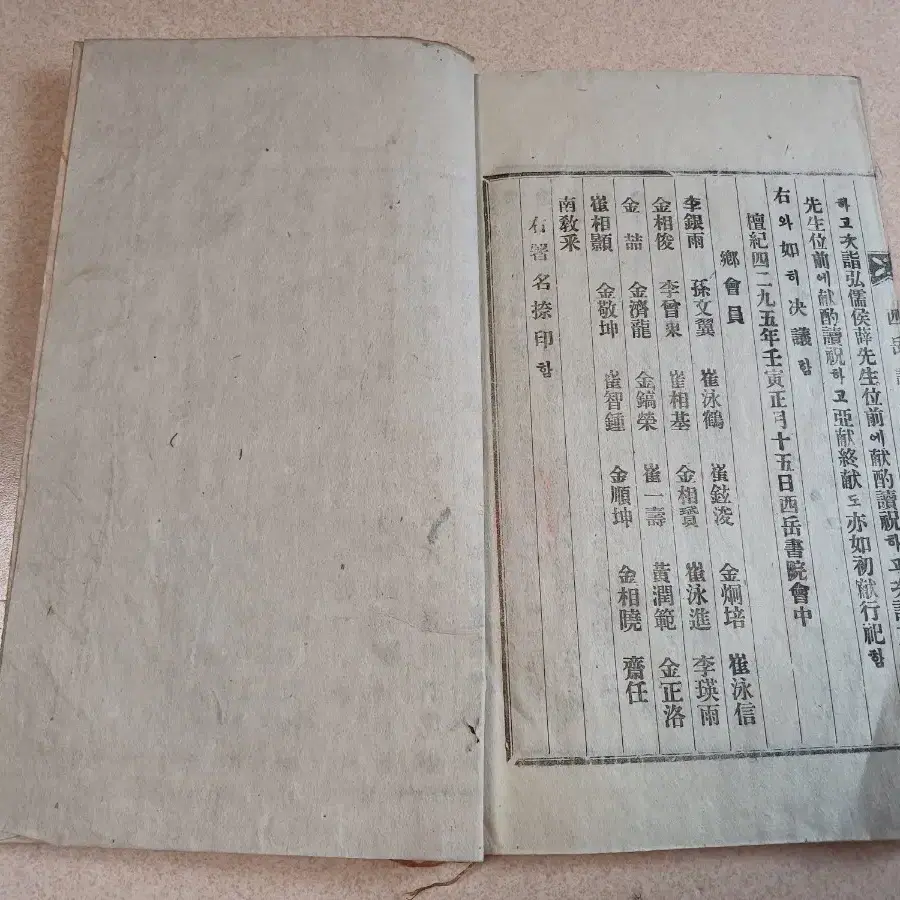 西岳誌
하고次詣弘儒侯薛先生位前에献酌讀祝하고次詣
先生位前에献酌讀祝하고亞献終献도亦如初献行祀함
右와如히决議함
檀紀四二九五年壬寅正月十五日西岳書院會中
鄕會員
李銀雨 孫文翼 崔泳鶴 崔鉉浚 金炯培 崔泳信
金相俊 李曾東 崔相基 金相贊 崔泳進 李瑛雨
金喆 金濟龍 金鎬榮 崔一壽 黃潤範 金正洛
崔相顥 金敬坤 崔智鍾 金順坤 金相曉 齋任
南敎釆
右署名捺印함